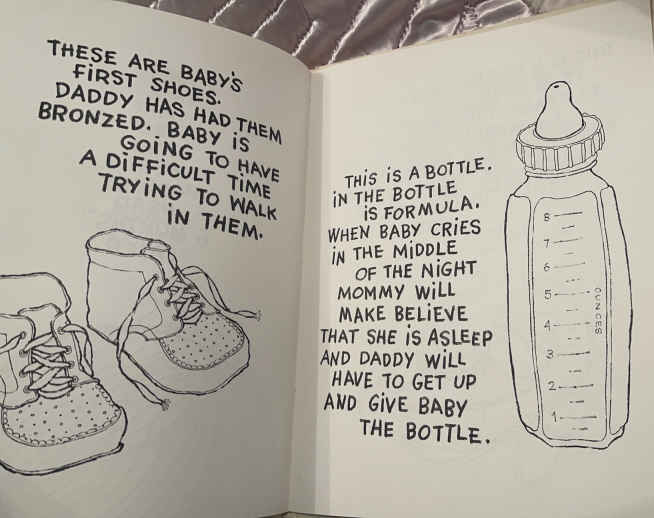 THESE ARE BABY'S
FIRST SHOES.
DADDY HAS HAD THEM
BRONZED. BABY IS
GOING TO HAVE
A DIFFICULT TIME
TRYING TO WALK
IN THEM.
THIS IS A BOTTLE.
IN THE BOTTLE
IS FORMULA.
WHEN BABY CRIES
IN THE MIDDLE
OF THE NIGHT
MOMMY WILL
MAKE BELIEVE
THAT SHE IS ASLEEP
AND DADDY WILL
HAVE TO GET UP
AND GIVE BABY
THE BOTTLE.
8
7
6
5
4
3
2
1
OUNCES